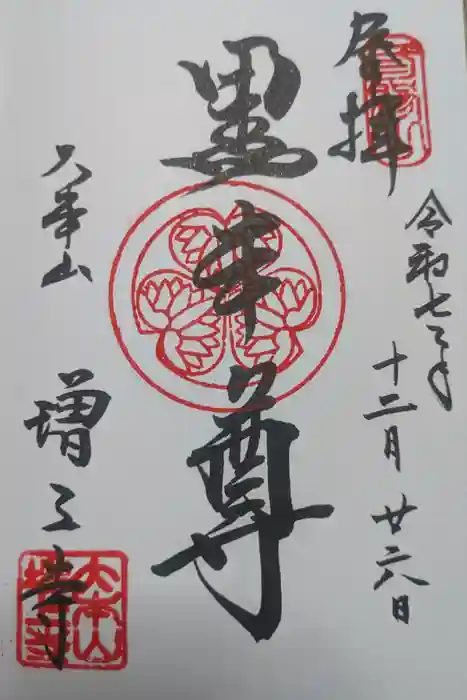 登拝
令和七年
十二月廿六日
黒本尊
大本山
増上寺
大本山
増上寺